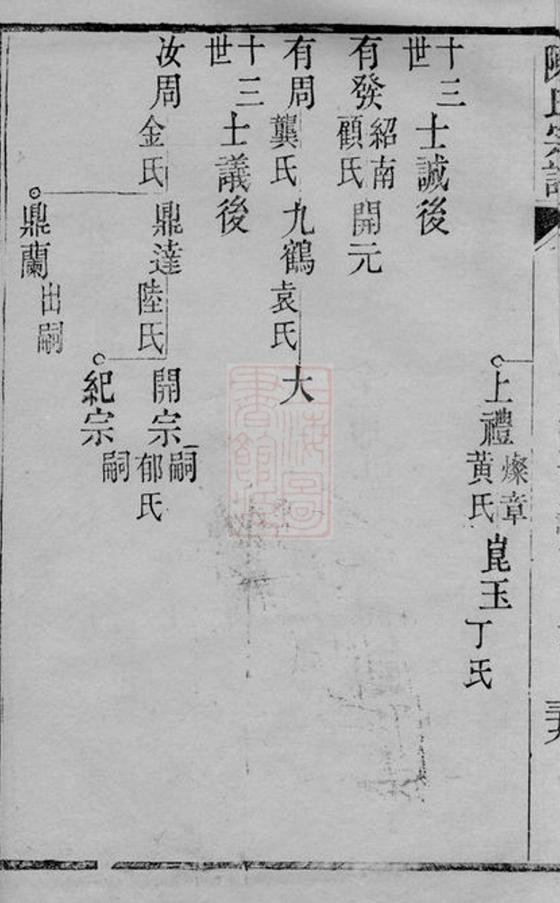 上禮 燦章 黃氏 崑玉 丁氏
十三世 士誠後
有發 紹南 顧氏 開元
有周 龔氏 九鶴 袁氏 大
十三世 士議後
汝周 金氏 鼎達 陸氏 開宗 嗣 郁氏
紀宗 嗣
鼎蘭 出嗣
上海圖書館藏